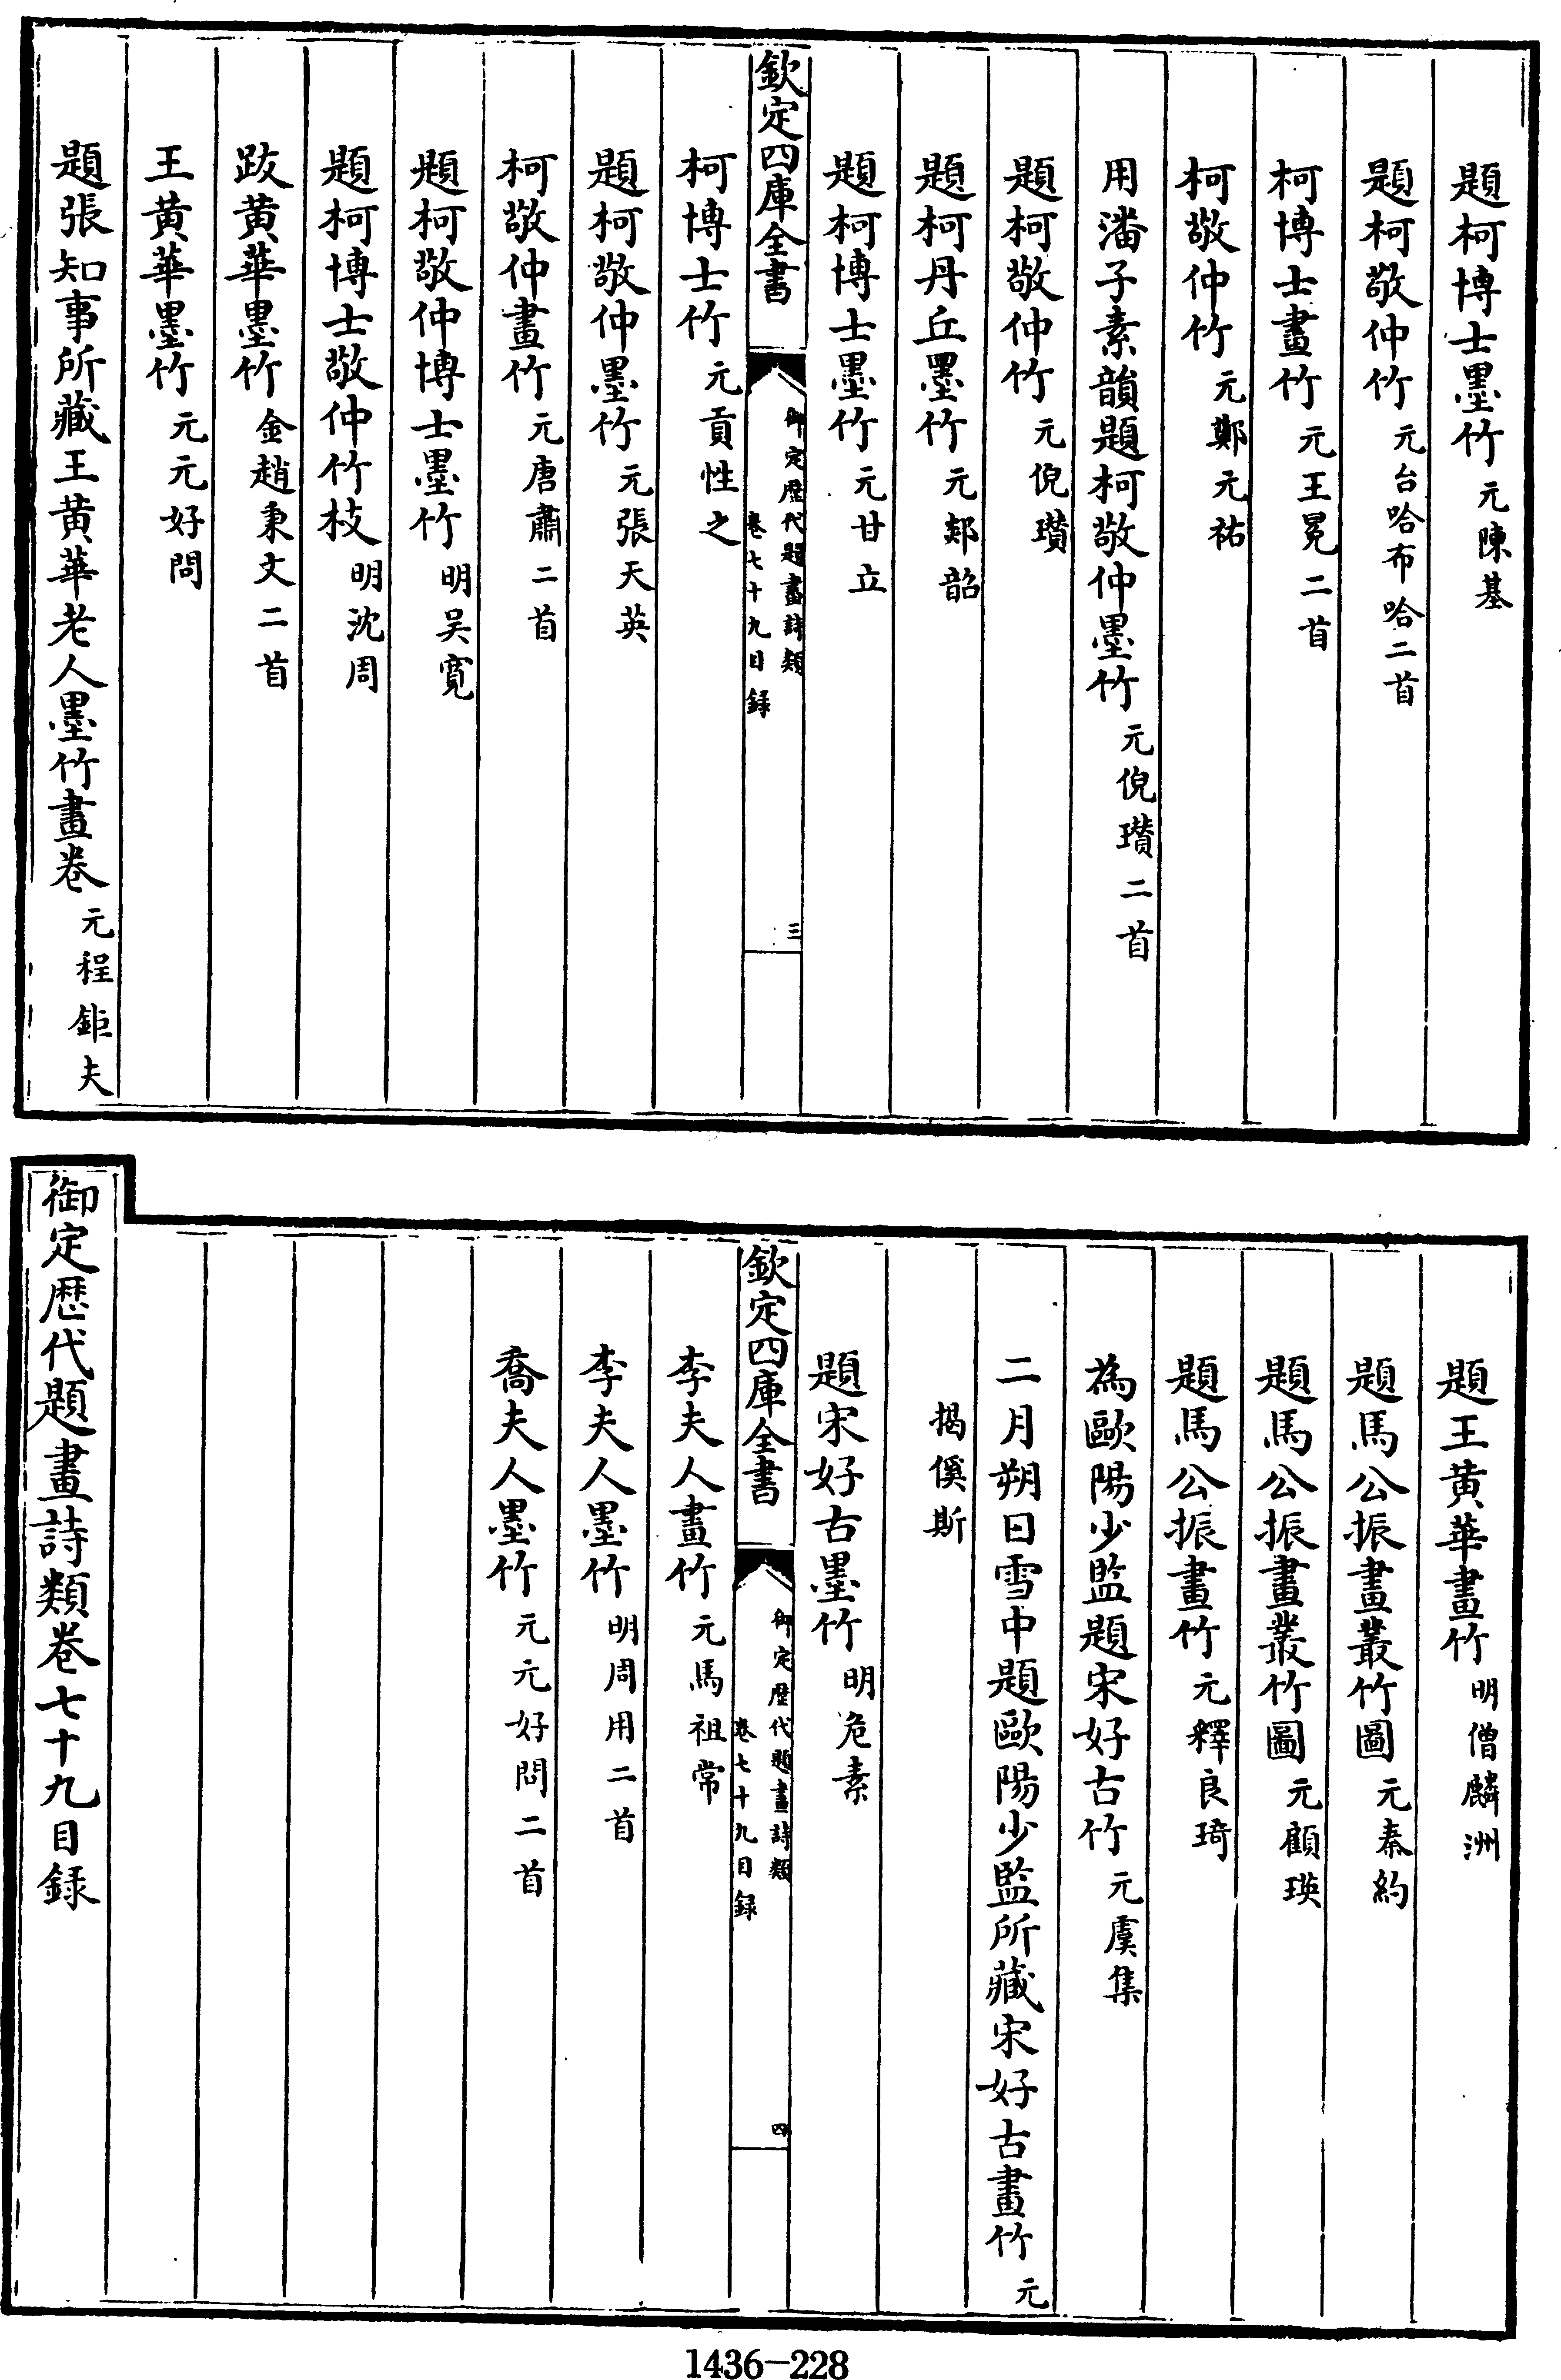 題柯博士墨竹 元陳基
題柯敬仲竹 元台哈布哈二首
柯博士畫竹 元王冕二首
柯敬仲竹 元鄭元祐
用潘子素韻題柯敬仲墨竹 元倪瓚二首
題柯敬仲竹 元倪瓚
題柯丹丘墨竹 元郯韶
題柯博士墨竹 元甘立
欽定四庫全書
御定歷代題畫詩類
卷七十九目錄
三
柯博士竹 元貢性之
題柯敬仲墨竹 元張天英
柯敬仲畫竹 元唐肅二首
題柯敬仲博士墨竹 明吳寬
題柯博士敬仲竹枝 明沈周
跋黃華墨竹 金趙秉文二首
王黃華墨竹 元元好問
題張知事所藏王黃華老人墨竹畫卷 元程鉅夫
題王黃華畫竹 明僧麟洲
題馬公振畫叢竹圖 元秦約
題馬公振畫叢竹圖 元顧瑛
題馬公振畫竹 元釋良琦
為歐陽少監題宋好古竹 元虞集
二月朔日雪中題歐陽少監所藏宋好古畫竹 元
揭傒斯
題宋好古墨竹 明危素
欽定四庫全書
御定歷代題畫詩類
卷七十九目錄
四
李夫人畫竹 元馬祖常
李夫人墨竹 明周用二首
喬夫人墨竹 元元好問二首
御定歷代題畫詩類卷七十九目錄
1436-228